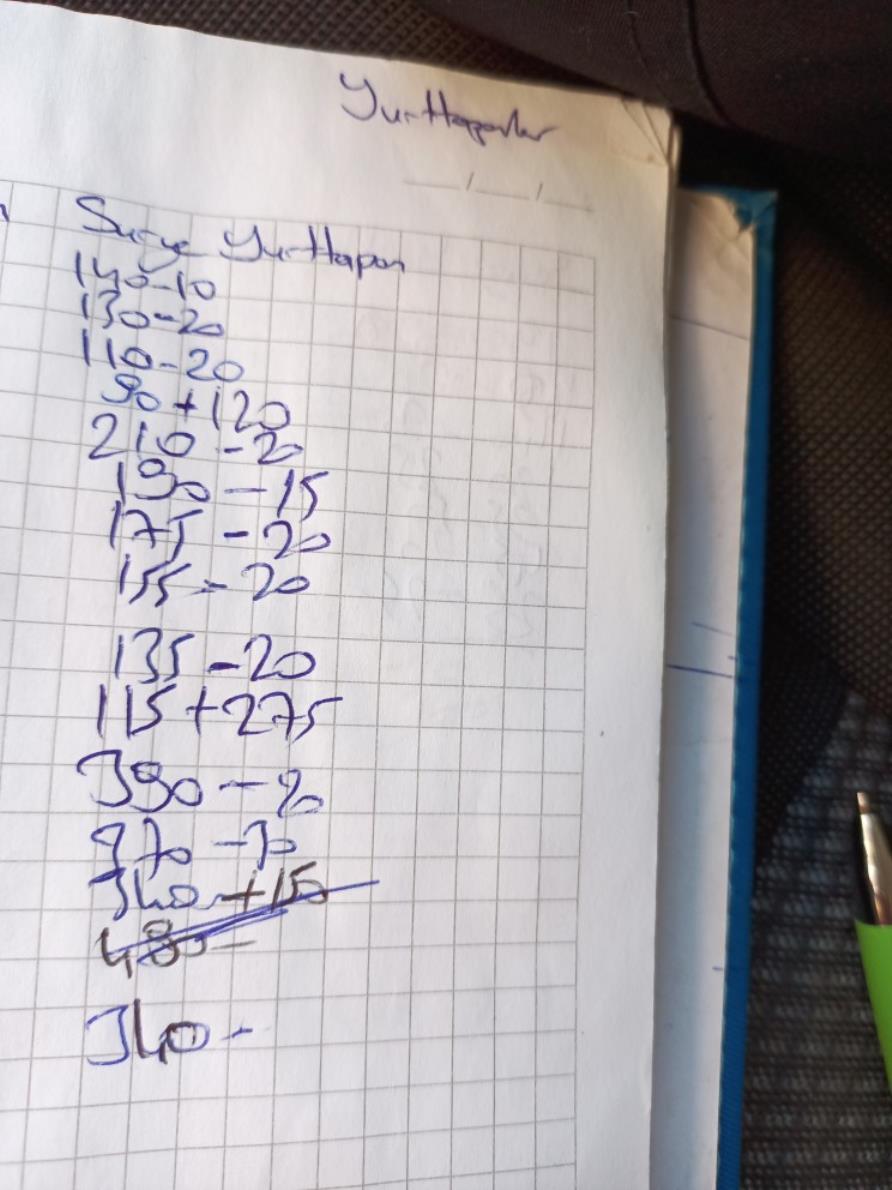 Yurttapanlar
__/__/__
Surye Yurttapan
140-10
130-20
110-20
90+120
210-20
190-15
175-20
155-20
135-20
115+275
390-20
370-30
340+150
480-
340-